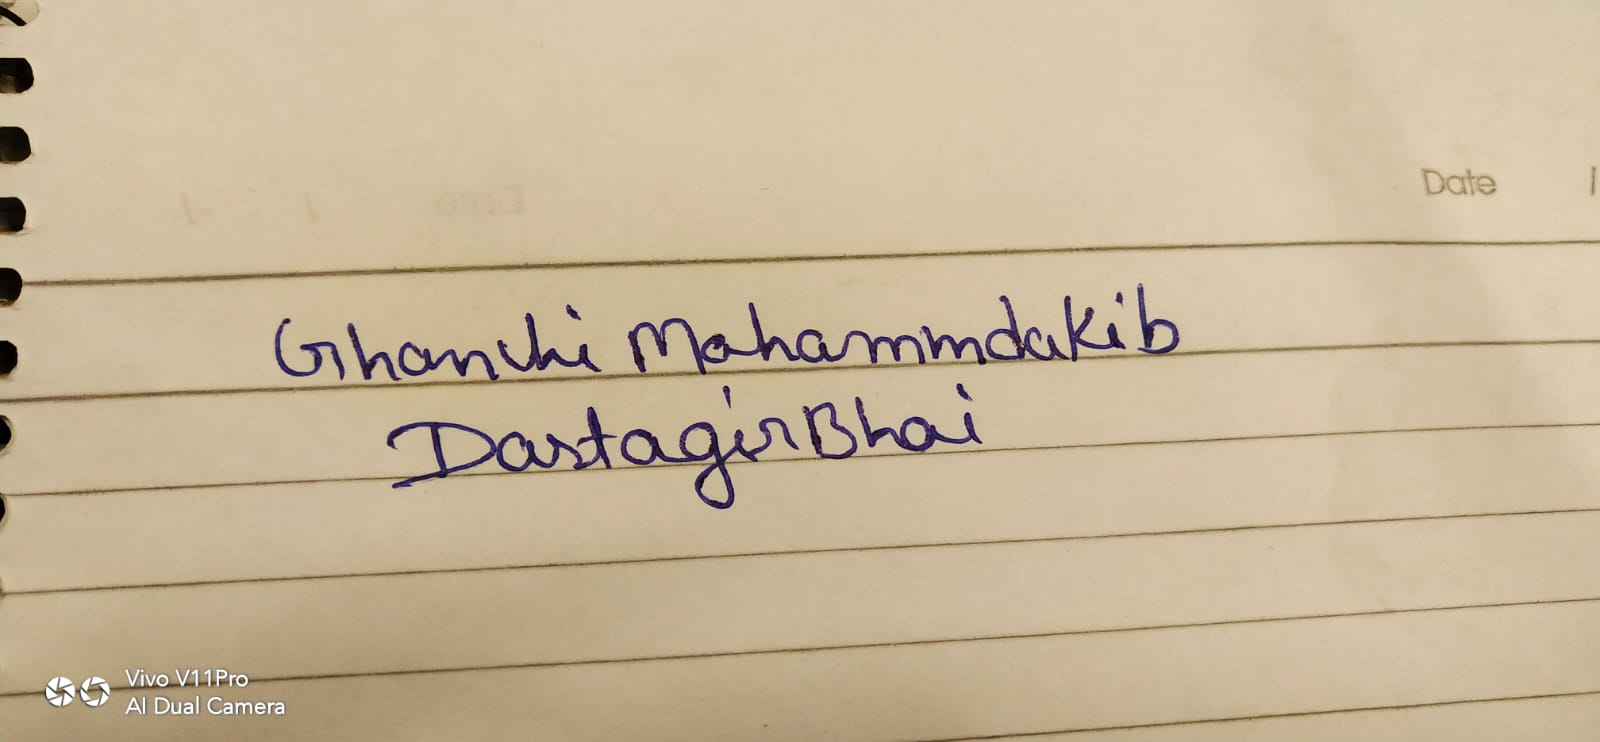 Date /
Ghanchi Mohammmdakib
DastagirBhai
Vivo V11Pro
AI Dual Camera